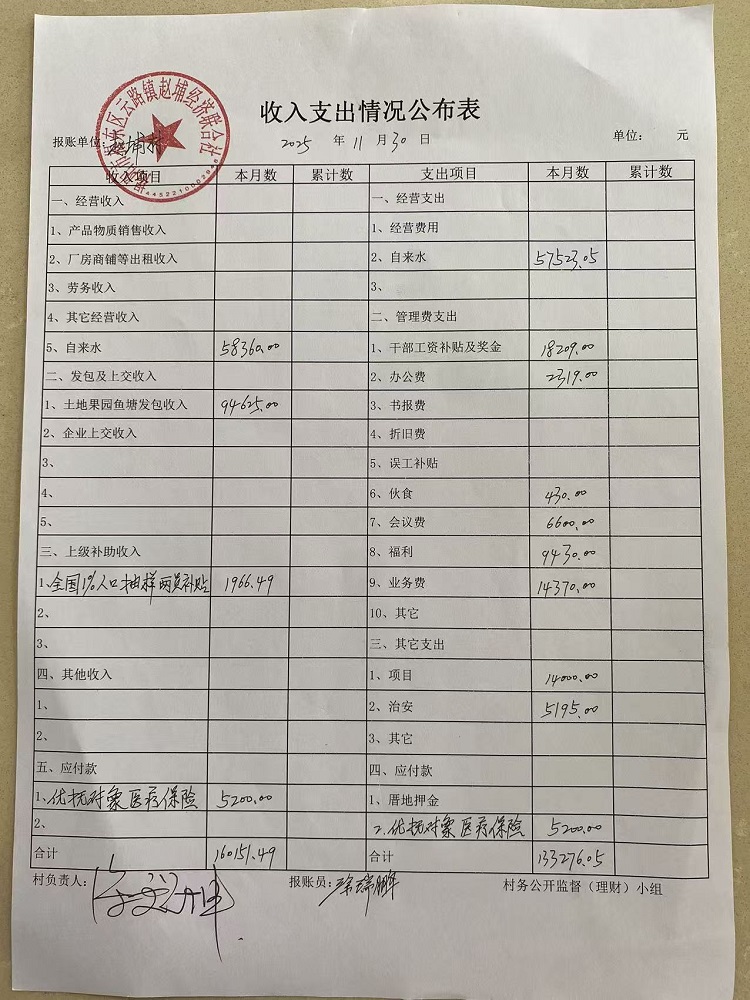 东区云路镇赵埔经济联合社
收入支出情况公布表
报账单位: 赵埔村 2025 年 11 月 30 日 单位: 元
收入项目 本月数 累计数 支出项目 本月数 累计数
一、经营收入 一、经营支出
1、产品物质销售收入 1、经营费用
2、厂房商铺等出租收入 2、自来水 57523.05
3、劳务收入 3、
4、其它经营收入 二、管理费支出
5、自来水 58360.00 1、干部工资补贴及奖金 18209.00
二、发包及上交收入 2、办公费 2319.00
1、土地果园鱼塘发包收入 94625.00 3、书报费
2、企业上交收入 4、折旧费
3、 5、误工补贴
4、 6、伙食 430.00
5、 7、会议费 6600.00
三、上级补助收入 8、福利 9430.00
1、全国1%人口抽样两员补贴 1966.49 9、业务费 14370.00
2、 10、其它
3、 三、其它支出
四、其他收入 1、项目 14000.00
1、 2、治安 5195.00
2、 3、其它
五、应付款 四、应付款
1、优抚对象医疗保险 5200.00 1、厝地押金
2、 2、优抚对象医疗保险 5200.00
合计 160151.49 合计 133276.05
村负责人: 报账员: 村务公开监督（理财）小组